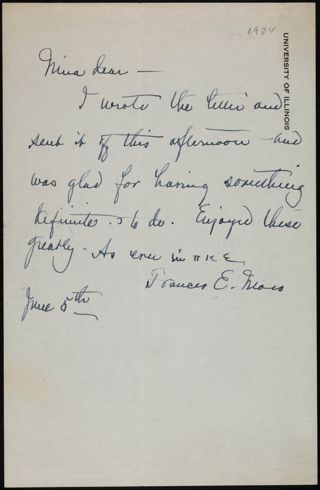 1924
UNIVERSITY OF ILLINOIS
Nina dear —
I wrote the letter and
sent it off this afternoon and
was glad for having something
definite to do. Enjoyed these
greatly. As ever in π K Σ
Frances E.
June 5th